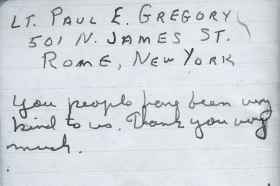 LT. PAUL E. GREGORY
501 N. JAMES ST.
ROME, NEW YORK
You people have been very
kind to us. Thank you very
much.